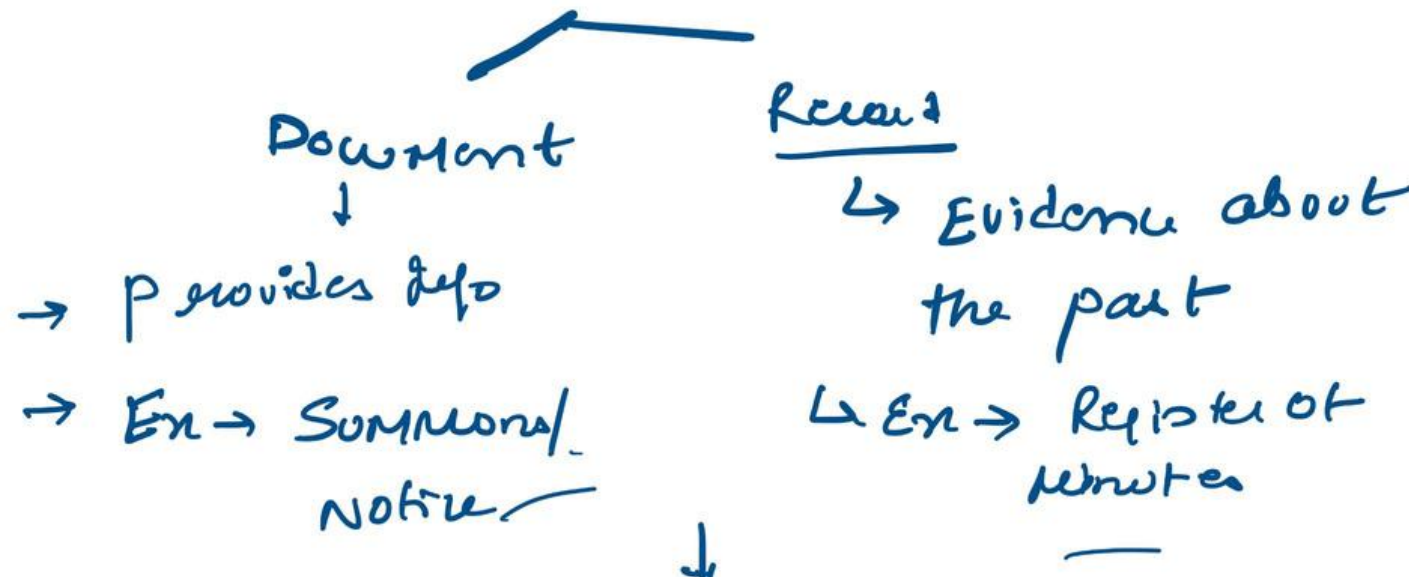 Document
Record
↓
→ Provides Info
→ Ex → Summons/
Notice
↳ Evidence about
the past
↳ Ex → Register of
minutes
↓